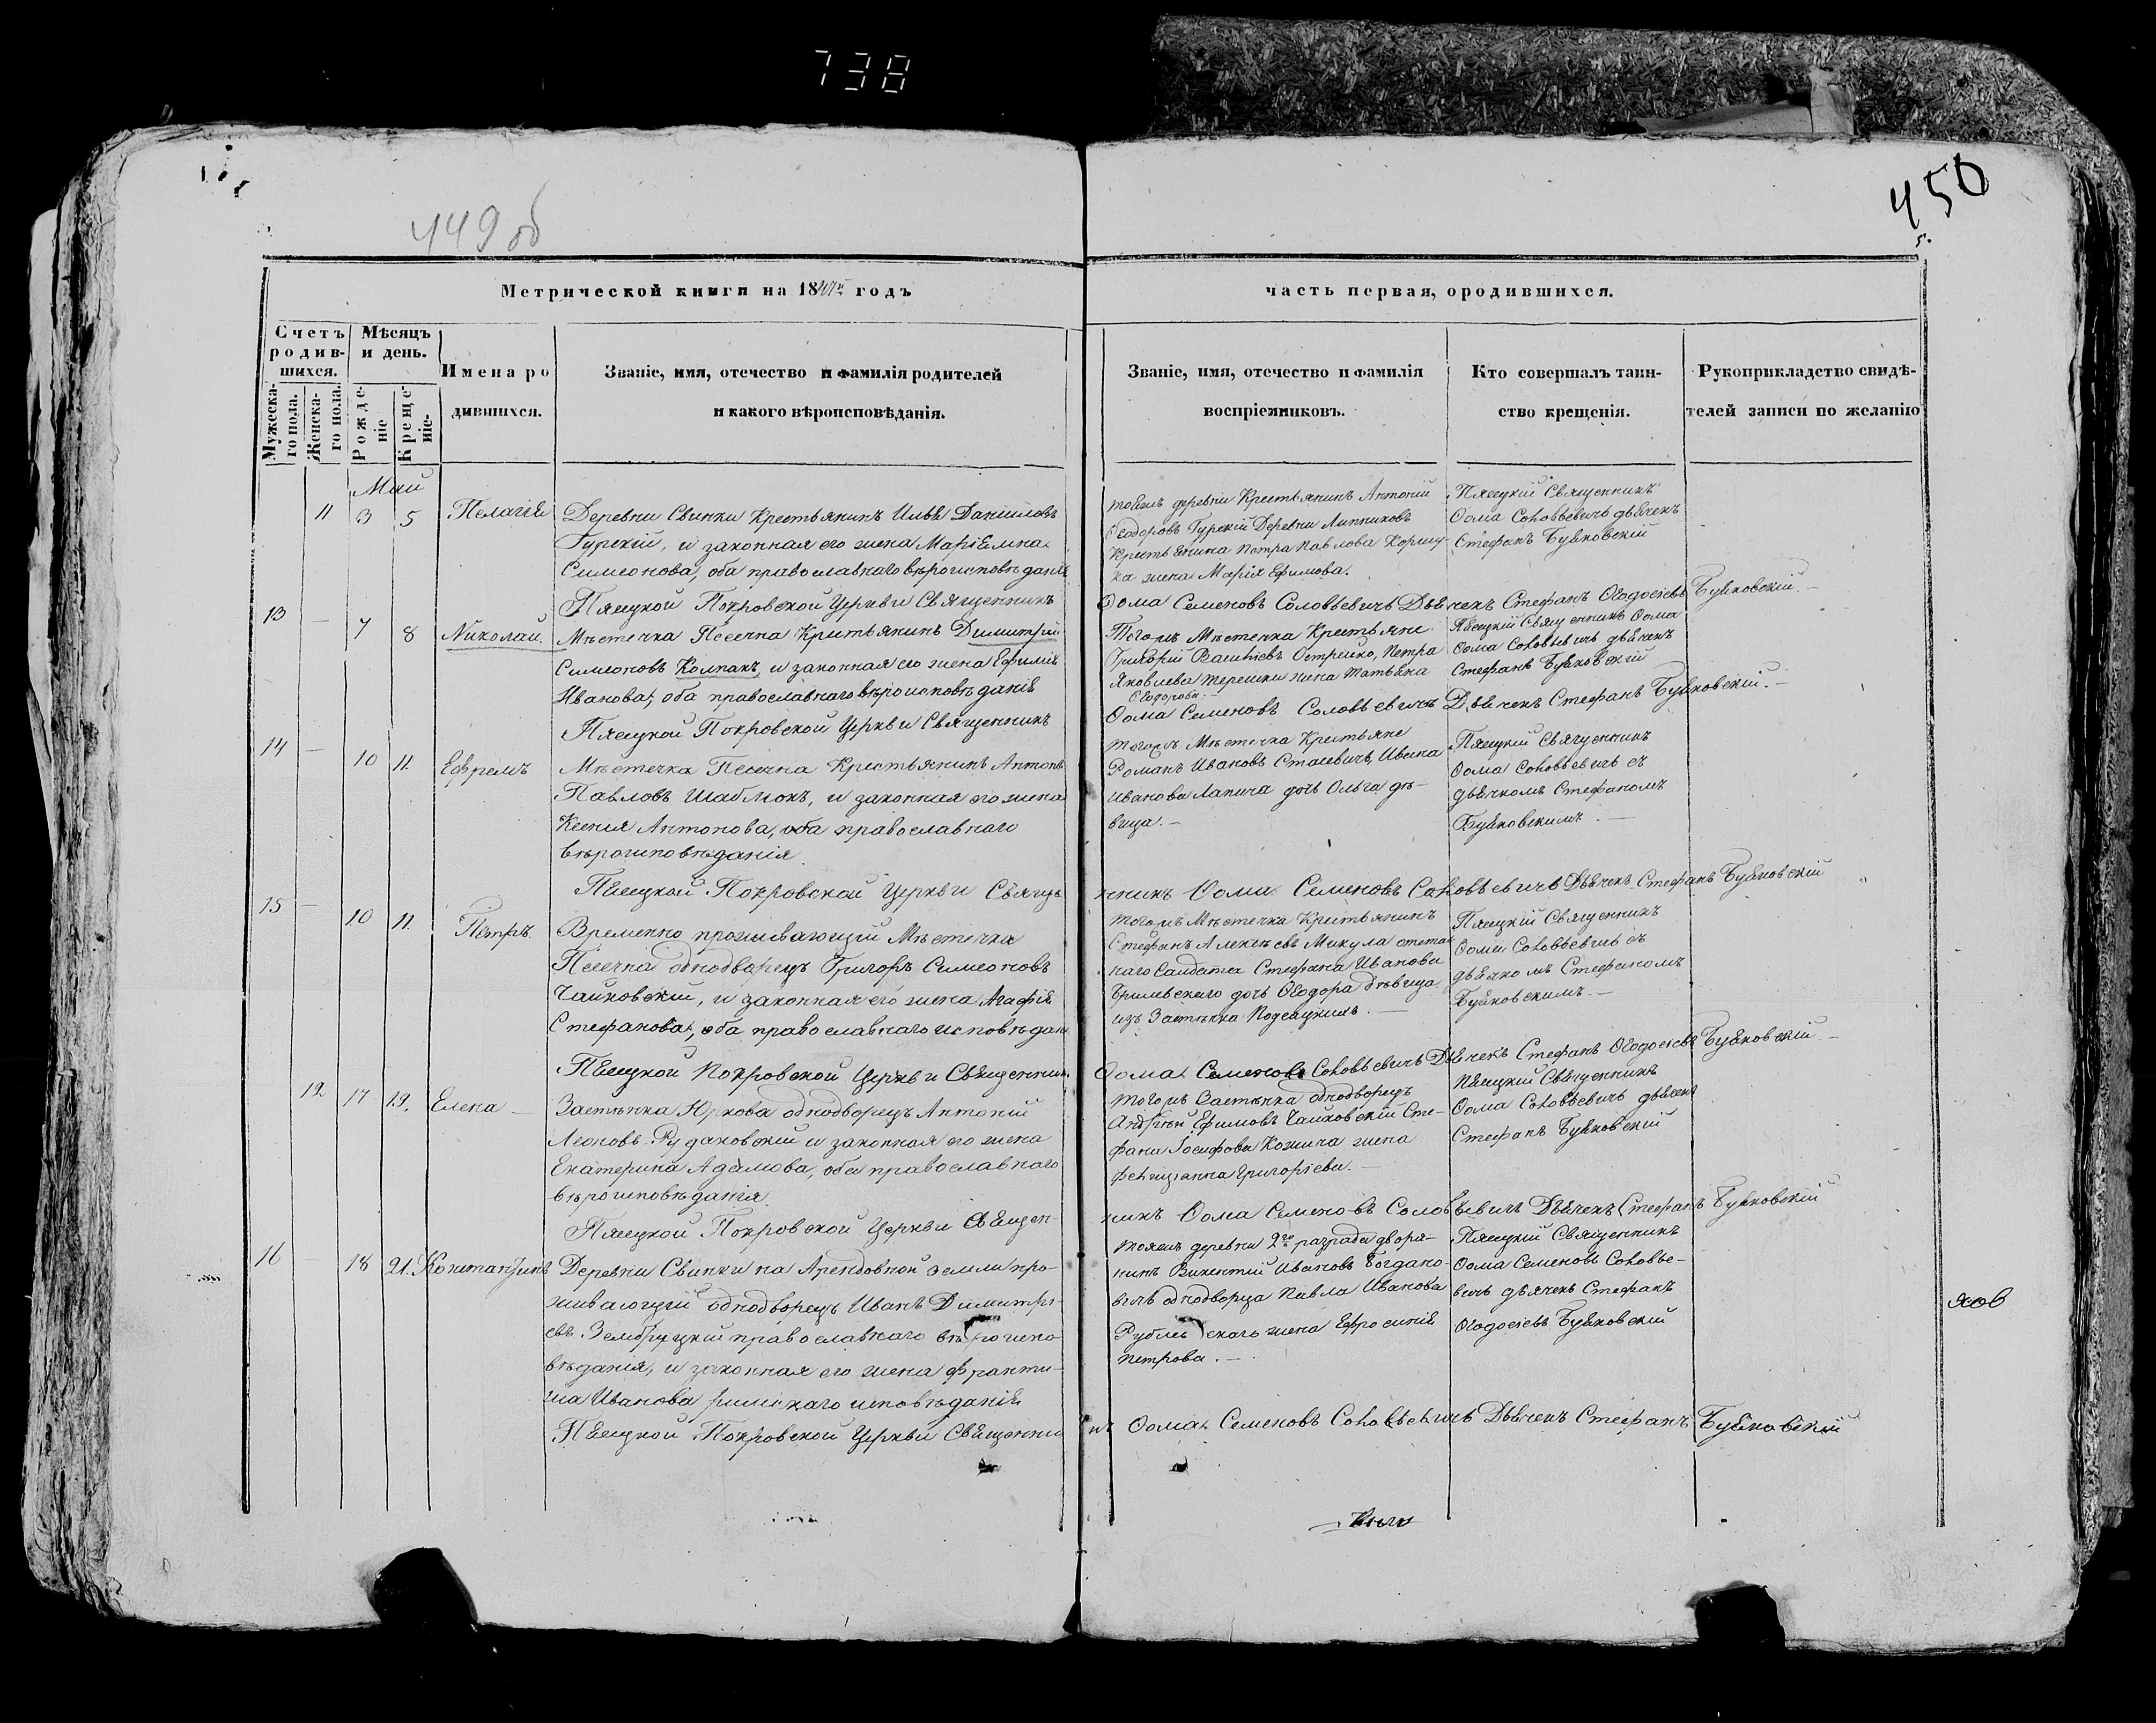 738
449 об
450
5.
Метрической книги на 1847й годъ
часть первая, ородившихся.
Счетъ родив-шихся.
Мужеска-го пола.
Женска-го пола.
Мѣсяцъ и день.
Рожде-ніе
Креще-ніе.
Имена ро
дившихся.
Званіе, имя, отечество и фамилія родителей
и какого вѣроисповѣданія.
Званіе, имя, отечество и фамилія
воспріемниковъ.
Кто совершалъ таин-
ство крещенія.
Рукоприкладство свидѣ-
телей записи по желанію
Май
11 3 5 Пелагія
Деревни Свинки Крестьянинъ Илья Даниловъ
Гурскій, и законная его жена Маріямна
Симеонова, оба православнаго вѣроисповѣданія
тойжъ деревни Крестьянинъ Антоній
Ѳеодоровъ Гурскій Деревни Липниковъ
Крестьянина Петра Павлова Коршу-
ка жена Марія Ефимова.
Пясецкій Священникъ
Ѳома Соловьевичъ дьячекъ
Стефанъ Буяковскій
Пясецкой Покровской Церкви Священникъ Ѳома Семеновъ Соловьевичъ Дьячекъ Стефанъ Ѳеодосіевъ Буяковскій.
13 — 7 8 Николай.
Мѣстечка Песечна Крестьянинъ Димитрій
Симеоновъ Колпакъ, и законная его жена Ефимія
Иванова, оба православнаго вѣроисповѣданія
Тогожъ Мѣстечка Крестьяне
Григорій Василіевъ Острейко, Петра
Яковлева Терешки жена Татьяна
Ѳеодорова.
Пясецкій Священникъ Ѳома
Соловьевичъ дьячекъ
Стефанъ Буяковскій
Пясецкой Покровской Церкви Священникъ Ѳома Семеновъ Соловьевичъ Дьячекъ Стефанъ Буяковскій.
14 — 10 11. Ефремъ
Мѣстечка Песечна Крестьянинъ Антонъ
Павловъ Шаблюкъ, и законная его жена
Ксенія Антонова, оба православнаго
вѣроисповѣданія.
тогожъ Мѣстечка Крестьяне
Романъ Ивановъ Стасевичъ, Ивана
Иванова Лапича дочь Ольга дѣ-
вица.
Пясецкій Священникъ
Ѳома Соловьевичъ съ
дьячкомъ Стефаномъ
Буяковскимъ.
Пясецкой Покровской Церкви Священникъ Ѳома Семеновъ Соловьевичъ Дьячекъ Стефанъ Буяковскій
15 — 10 11. Петръ.
Временно проживающій Мѣстечка
Песечна однодворецъ Григоръ Симеоновъ
Чайковскій, и законная его жена Агафія
Стефанова, оба православнаго исповѣдані
тогожъ Мѣстечка Крестьянинъ
Стефанъ Алексѣевъ Микула отстав
наго Салдата Стефана Иванова
дочь Ѳеодора дѣвица
изъ Застѣнка
Пясецкій Священникъ
Ѳома Соловьевичъ съ
дьячкомъ Стефаномъ
Буяковскимъ.
Пясецкой Покровской Церкви Священникъ Ѳома Семеновъ Соловьевичъ Дьячекъ Стефанъ Ѳеодосіевъ Буяковскій.
12 17 19. Елена
Застѣнка Юркова однодворецъ Антоній
Леоновъ Рудаковскій и законная его жена
Екатерина Адамова, оба православнаго
вѣроисповѣданія
тогожъ Застѣнка однодворецъ
Андрей Ефимовъ Чайковскій Сте-
фана Іосифова Кожича жена
Фелиціанна Григоріева.
Пясецкій Священникъ
Ѳома Соловьевичъ дьячекъ
Стефанъ Буяковскій
Пясецкой Покровской Церкви Священникъ Ѳома Семеновъ Соловьевичъ Дьячекъ Стефанъ Буяковскій
16 — 18 21. Константинъ
Деревни Свинки на Арендовной земли про-
живающій однодворецъ Иванъ Димитрі-
евъ Зембрицкій православнаго вѣроиспо-
вѣданія, и законная его жена Франти-
Иванова римскаго исповѣданія
тойжъ деревни 2го разряда дворя-
нинъ Викентій Ивановъ Богдано-
вичъ однодворца Павла Иванова
жена Ефросинія
Петрова.
Пясецкій Священникъ
Ѳома Семеновъ Соловье-
вичъ дьячекъ Стефанъ
Ѳеодосіевъ Буяковскій
Пясецкой Покровской Церкви Священникъ Ѳома Семеновъ Соловьевичъ Дьячекъ Стефанъ Буяковскій